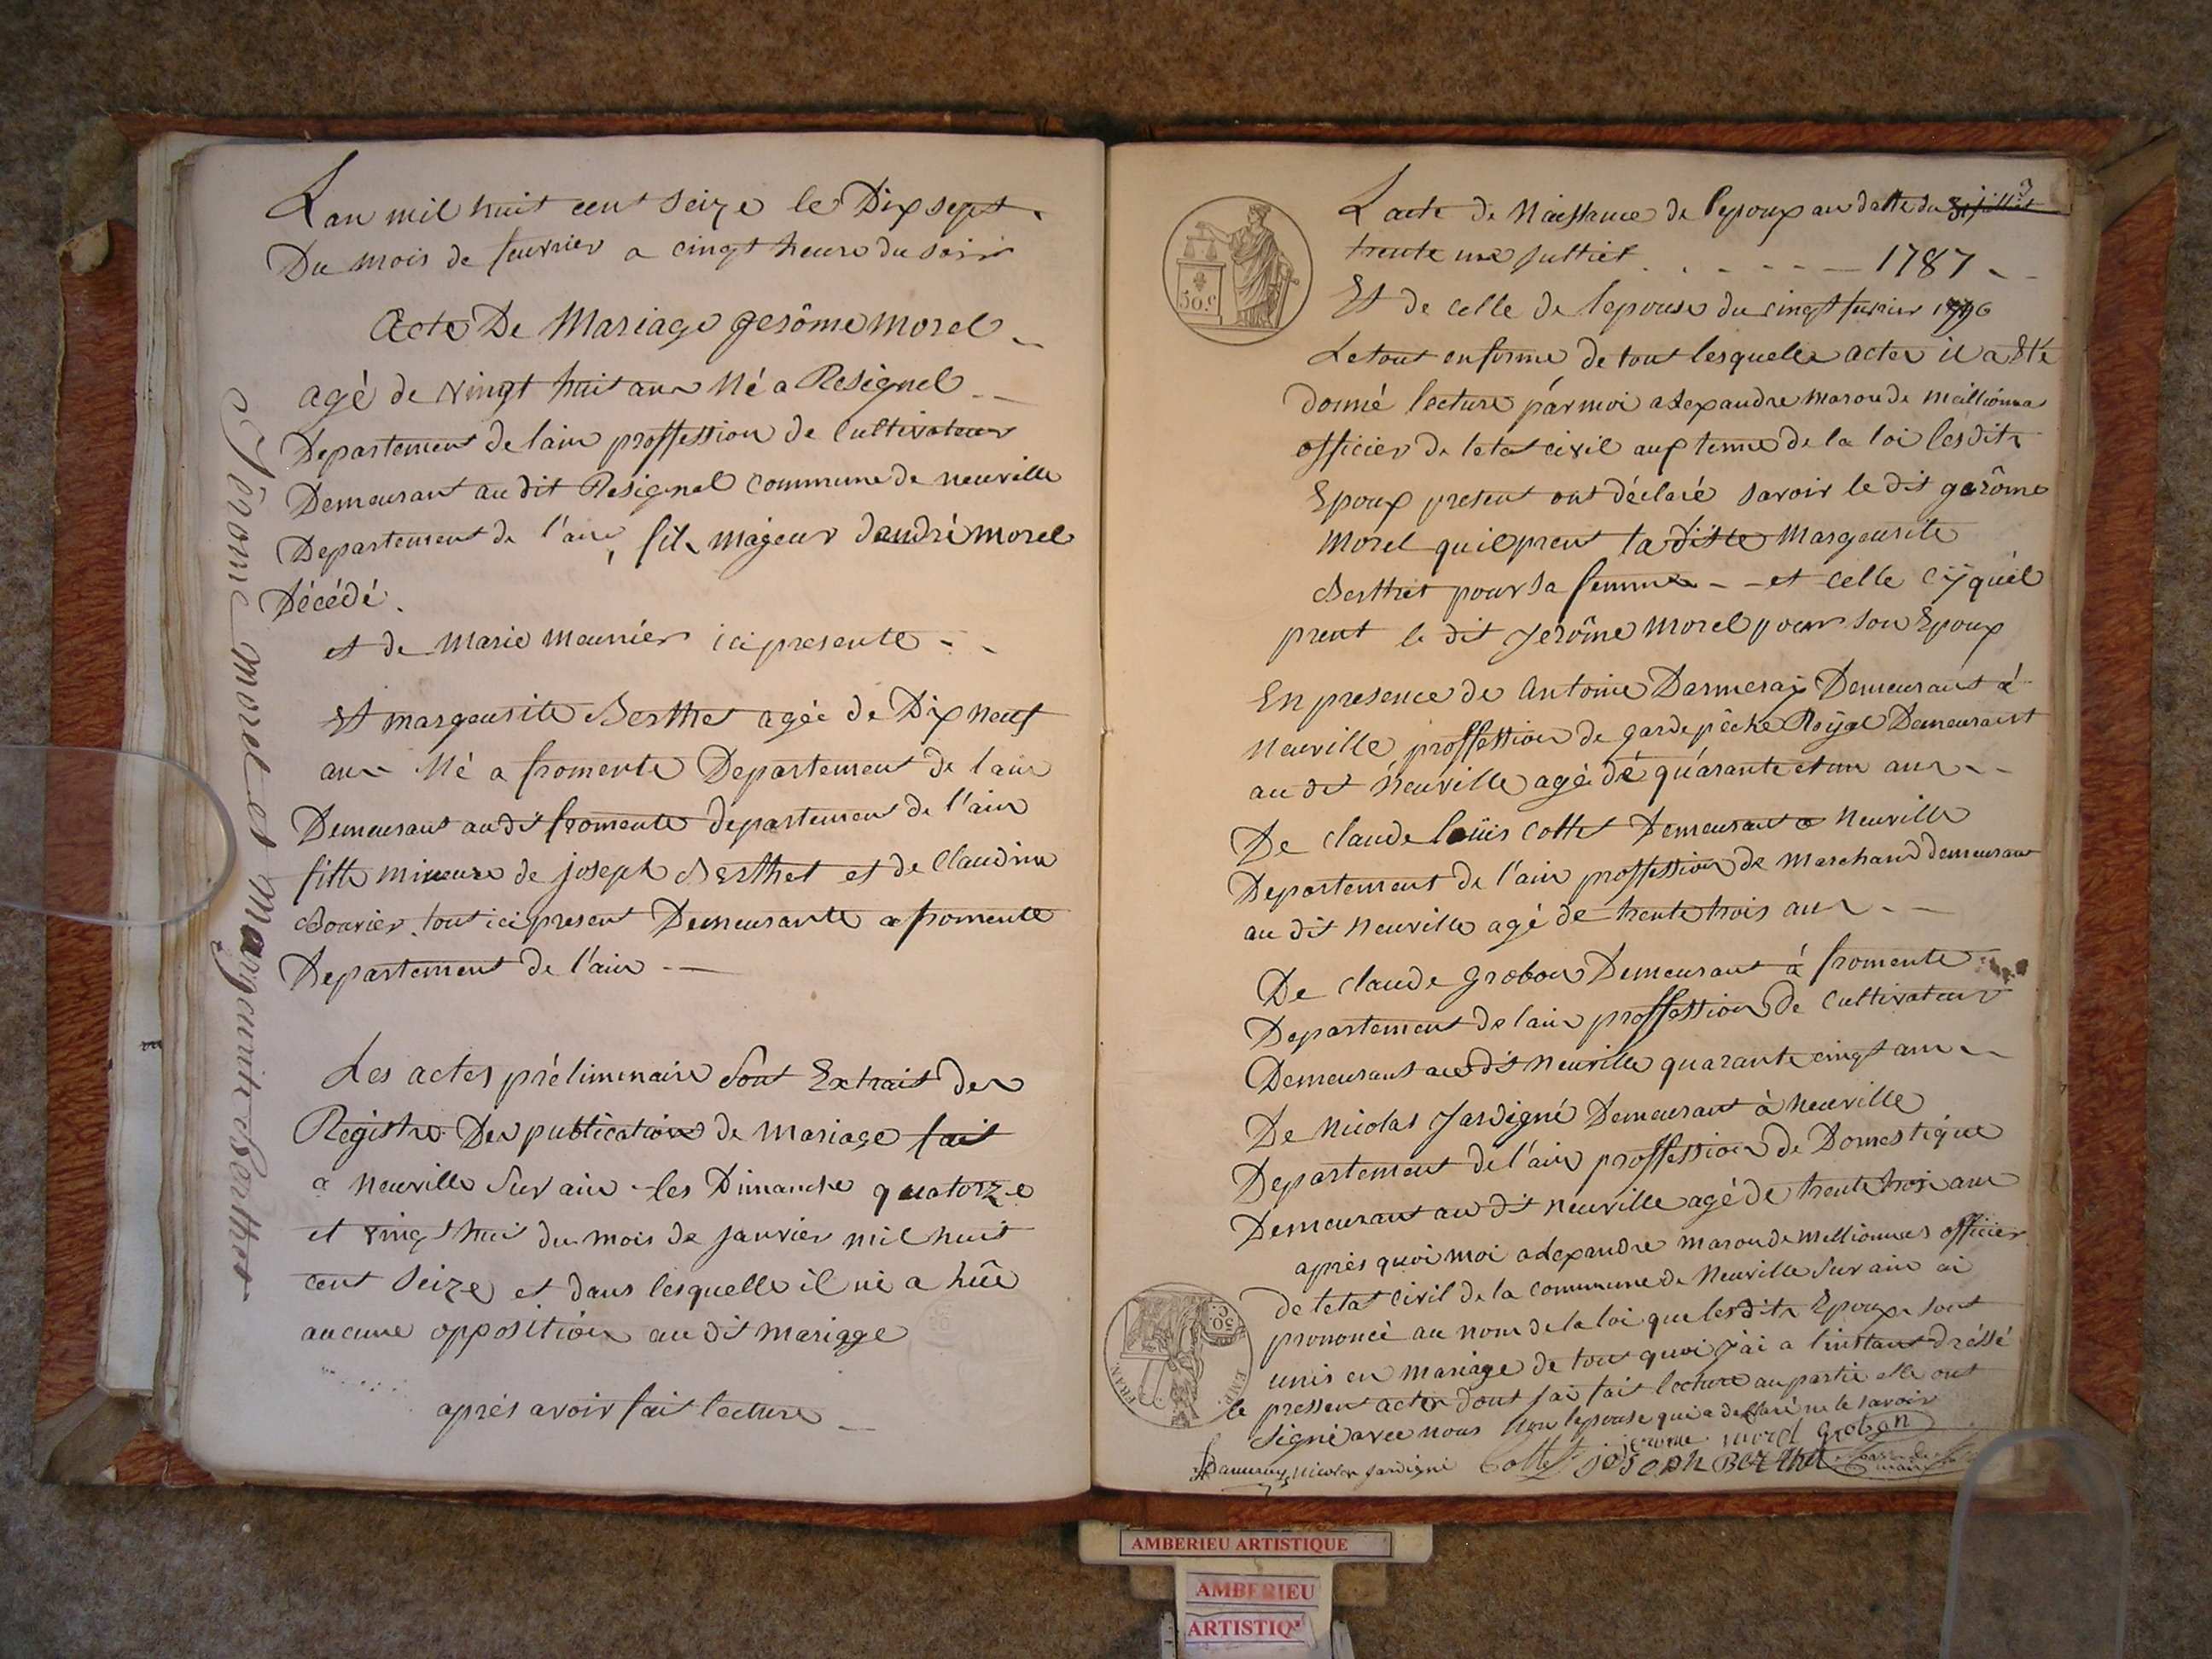 Lan mil huit cent seize le Dix sept
Du mois de fevrier a cinqt heure du soir
Acte De Mariage gerôme morel
agé de vingt huit ans Né a Resignel
Departement de lain proffession de Cultivateur
Demeurant au dit Resignel commune de neuville
Departement de l'ain, fils majeur dandré morel
Décédé.
et de Marie meunier ici presente
Et margeurite Berthet agée de Dix neuf
ans Né a fromente Departement de lain
Demeurant audit fromente departement de l'ain
fille mineure de joseph Berthet et de Claudine
Bouvier tout ici present Demeurante a fromente
Departement de l'ain
Jérome Morel et Margeurite Berthet
Les actes préliminaire Sont Extrait des
Registre Des publications de mariage fait
a neuville Sur ain les Dimanche quatorze
et vingt huit du mois de janvier mil huit
cent Seize et dans lesquelle il ni a hüe
aucune opposition au dit mariage
après avoir fait lecture
3
L acte de Naissance de lepoux au datte du
trente une julliet 1787
50.c
Et de celle de lepouse du cinqt fevrier 1796
Le tout en forme de tout lesquelle actes il a Eté
donné lecture par moi alexandre maron de meillionnas
officier de letat civil aux terme de la loi lesdits
Epoux present ont déclaré savoir le dit gerôme
Morel quil prent la ditte Margeurite
Berthet pour sa femme et celle cÿ quél
prent le dit Jerôme Morel pour son Epoux
En presence de Antoine Darmeraÿ Demeurant à
Neuville proffession de garde pêche Roÿal Demeurant
au dit Neuville agé de quarante et un ans
De Claude loüis Cottet Demeurant a Neuville
Departement de l'ain proffession de Marchand demeurant
au dit Neuville agé de trente trois ans
De Claude grobon Demeurant à fromente
Departement de lain proffession de Cultivateur
Demeurant au dit Neuville quarante cinqt ans
De Nicolas Jardigné Demeurant à Neuville
Departement de l'ain proffession de Domestique
Demeurant au dit Neuville agé de trente trois ans
après quoi moi alexandre maron de meillionnas officier
de letat civil de la commune de Neuville Sur ain ai
prononcé au nom de la loi que lesdits Epoux sont
unis en mariage de tout quoi j'ai a l'instant dréssé
le pressent acte dont jai fait lecture au partie elle ont
Signé avec nous non lepouse qui a declaré ne le savoir
FRAN.
EMP.
50.c
jerome morel Grobon
Nicolas Jardigné Cottet joseph BERthet
AMBERIEU ARTISTIQUE
AMBERIEU
ARTISTIQ